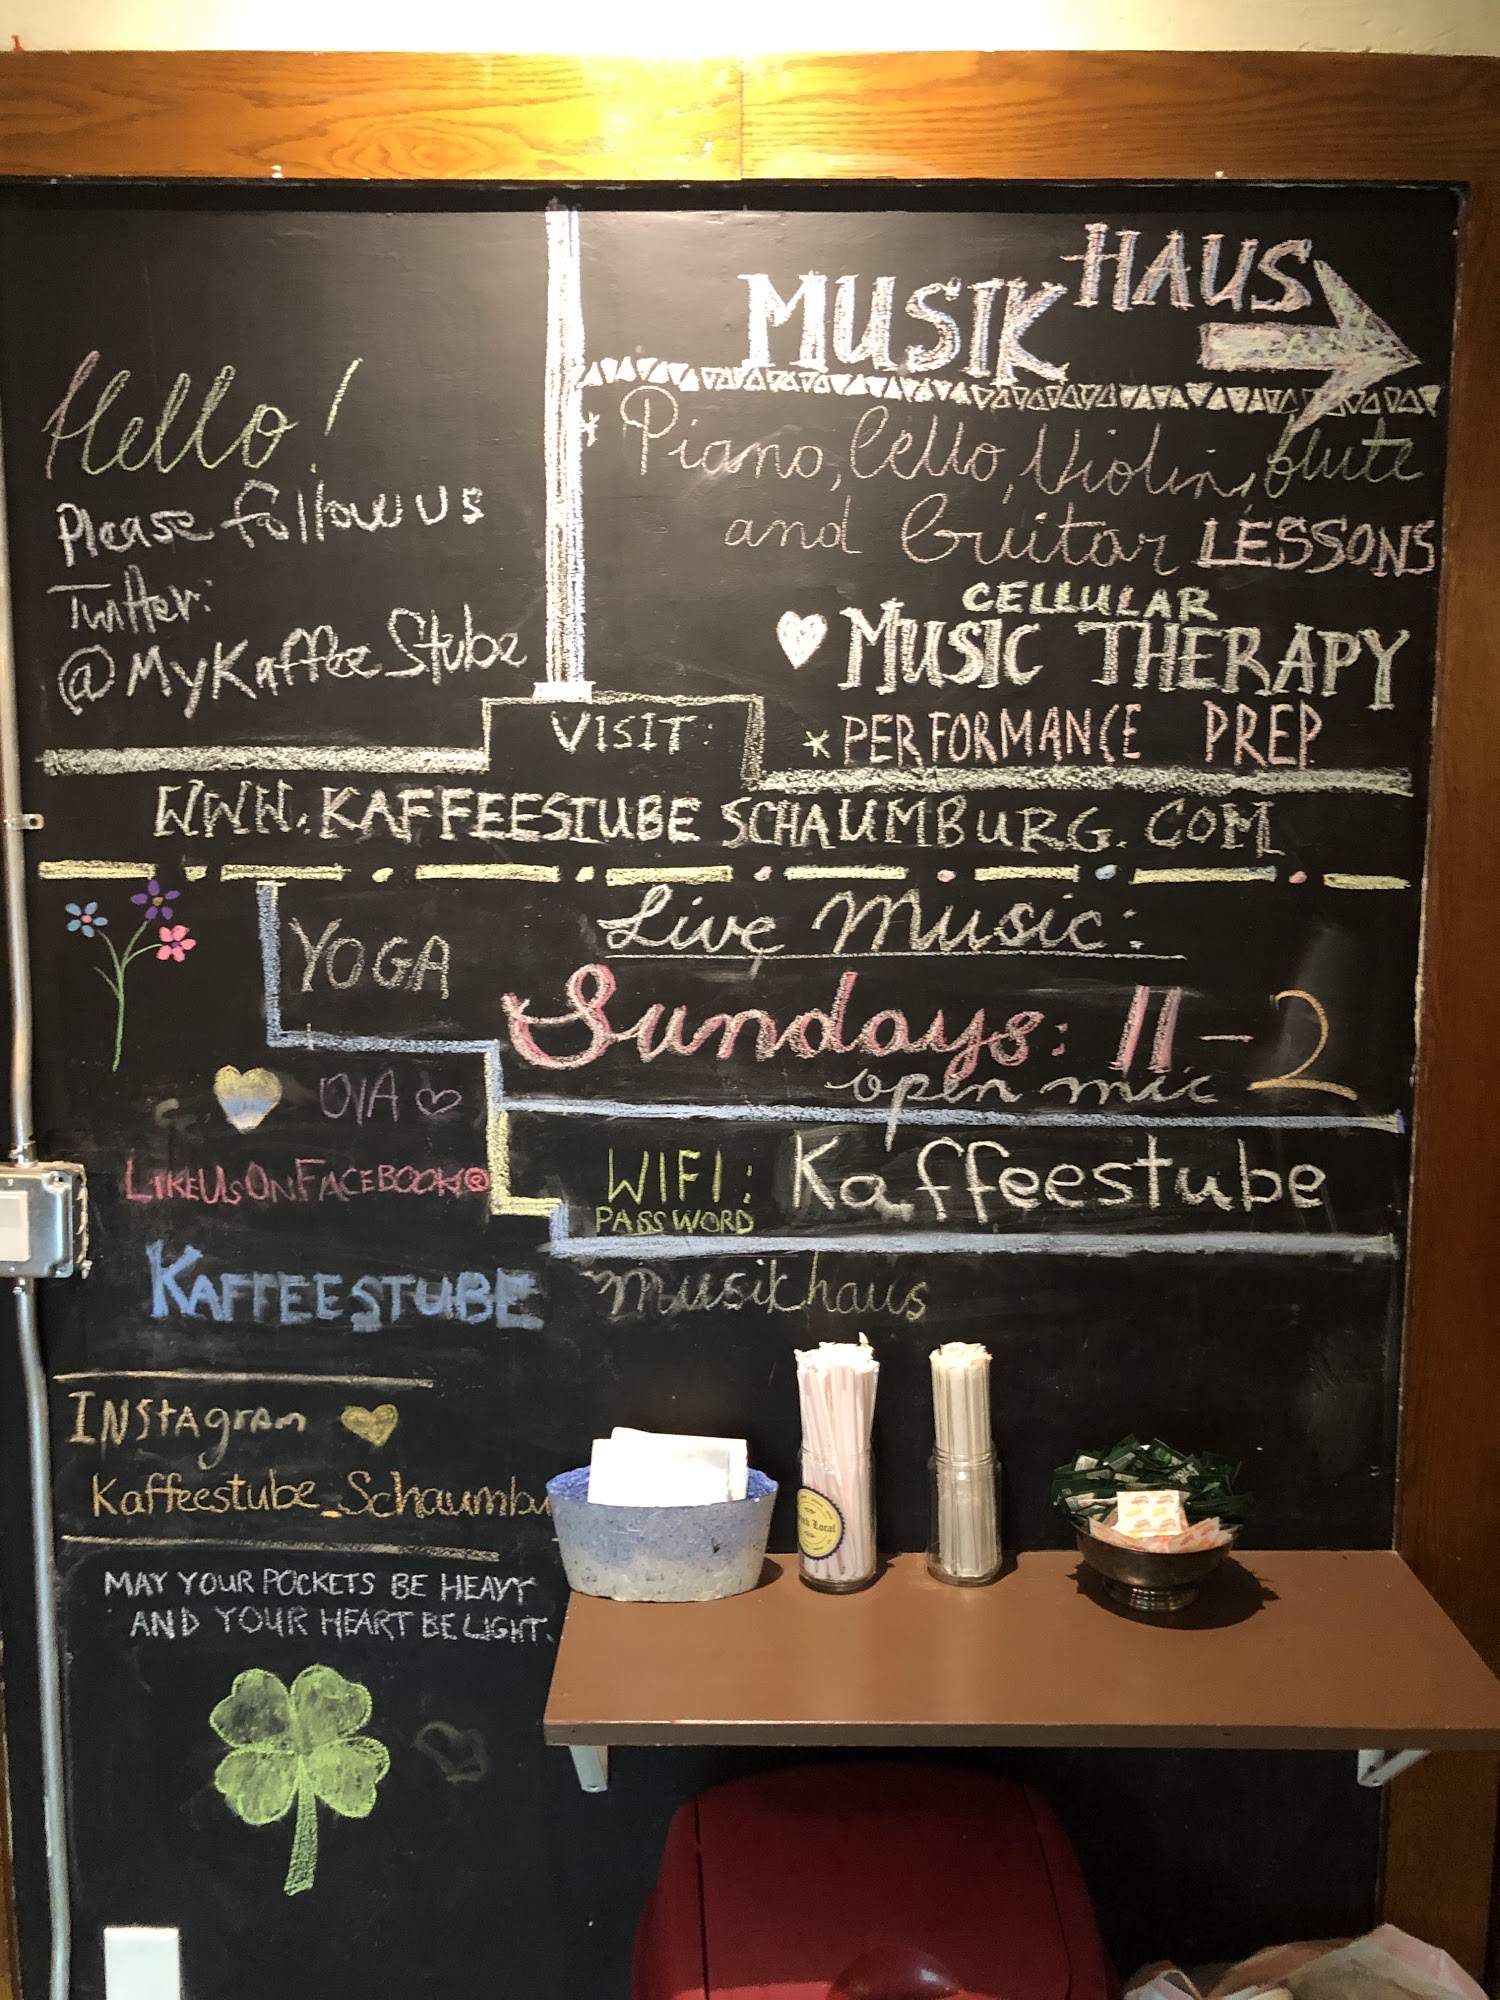 MUSIK HAUS
* Piano, Cello, Violin, flute
and Guitar LESSONS
CELLULAR
MUSIC THERAPY
* PERFORMANCE PREP
Hello!
Please follow us
Twitter:
@MyKaffeeStube
VISIT:
WWW.KAFFEESTUBESCHAUMBURG.COM
YOGA
Live Music:
Sundays: 11-2
open mic
LIKEUSONFACEBOOK@
KAFFEESTUBE
WIFI: Kaffeestube
PASSWORD
musikhaus
INStagram
Kaffeestube_Schaumbu
MAY YOUR POCKETS BE HEAVY
AND YOUR HEART BE LIGHT.
Local